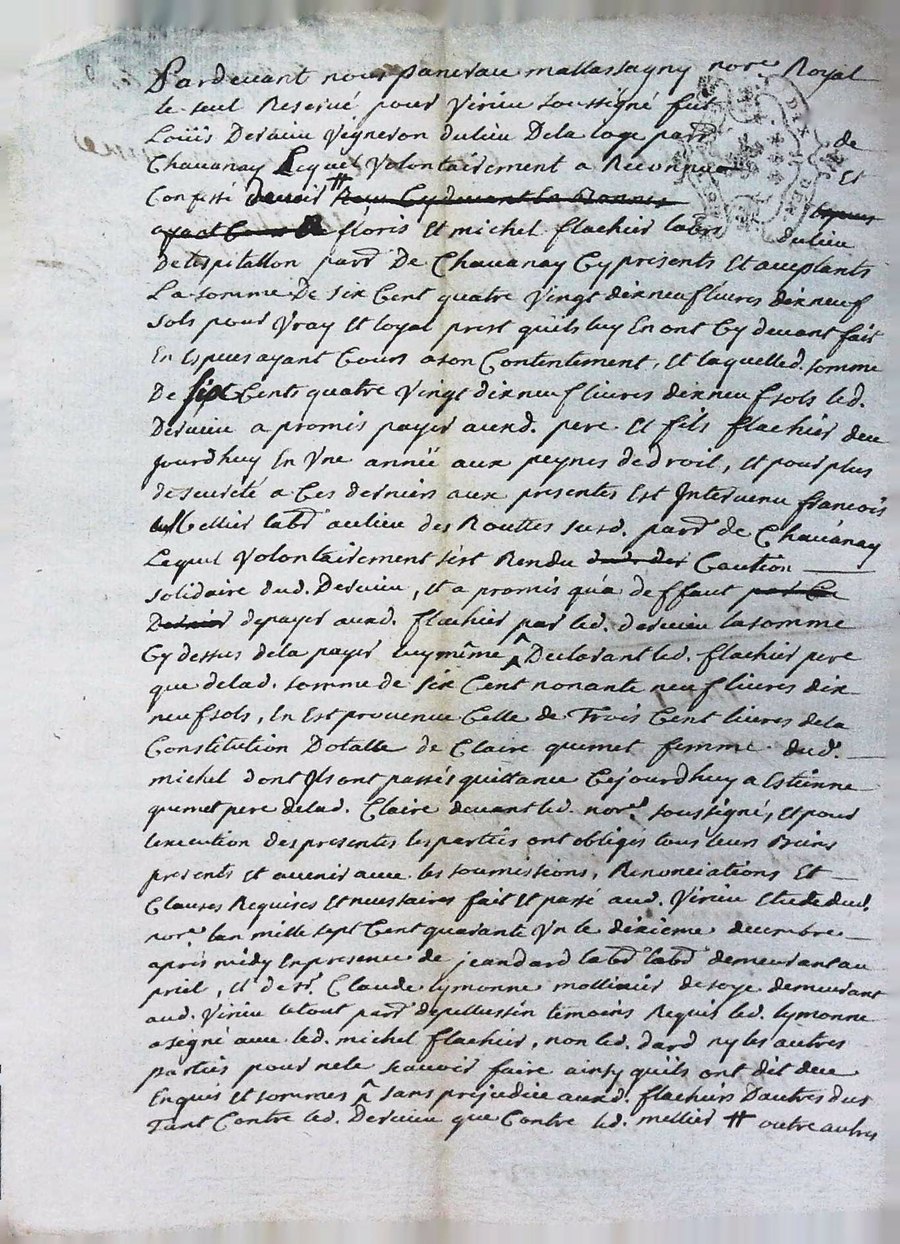 Pardevant nous pancrau mallassagny nore Royal
le seul Reservé pour Virieu soussigné fut
Loüis Dervieu Vigneron du lieu De la loge parr de
Chavanay Lequel Volontairement a Reconnu Et
Confessé devoir #
floris Et michel flachier labrs du lieu
De lespitallon parr De Chavanay Cy presents Et acceptants
La somme De six Cent quatre Vingt dix neuf livres dix neuf
sols pour Vray Et loyal prest quils luy En ont Cy devant fait
En Especes ayant Cours a son Contentement, Et laquelle d. somme
De six Cents quatre Vingt dix neuf livres dix neuf sols led.
Dervieu a promis payer auxd. pere Et fils flachier deu
jourdhuy En Vne année aux peynes de droit, Et pour plus
de seureté a Ces derniers aux presentes Est Intervenu francois
Mellier labr au lieu des Routtes susd. parr de Chavanay
Lequel Volontairement s'est Rendu Caution
solidaire dud. Dervieu, Et a promis qu'a deffaut
de payer auxd. flachier par led. dervieu la somme
Cy dessus de la payer luy même ^ Declarant led. flachier pere
que de lad. somme de six Cent nonante neuf livres dix
neuf sols, En Est provenue Celle de Trois Cent livres de la
Constitution Dotalle de Claire quemet femme dud.
michel dont Ils ont passés quittance Cejourdhuy a Estienne
quemet pere de lad. Claire devant led. nore soussigné, Et pour
lexecution des presentes les parties ont obligés tous leurs Biens
presents Et avenir avec les soumissions, Renonciations Et
Clauses Requises Et necessaires fait Et passé aud. Virieu Etude dud.
nore lan mille sept Cent quarante Vn le dixieme decembre
après midy En presence de jean dard labr labr demeurant au
priel, Et de sr. Claude lymonne mollinier de soye demeurant
aud. Virieu le tout parr de pellussin temoins Requis led. lymonne
a signé avec led. michel flachier, non led. dard ny les autres
parties pour ne le scavoir faire ainsy quils ont dit deue
Enquis Et sommés ^ sans prejudice auxd. flachiers D'autres dus
Tant Contre led. Dervieu que Contre led. mellier # outre autres